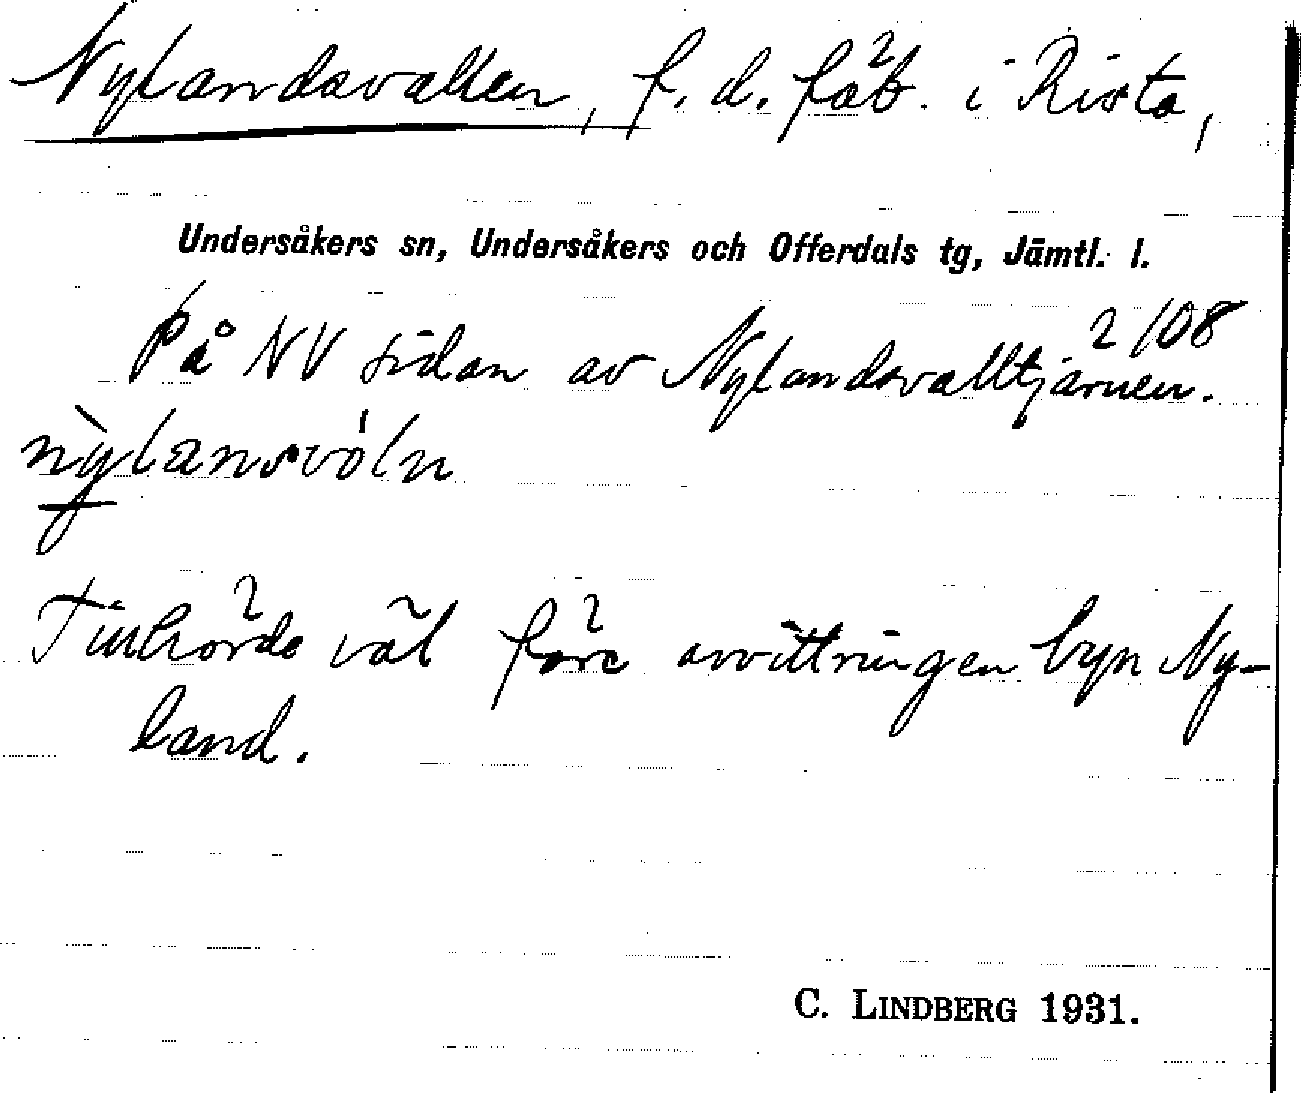 Nylandsvallen, f. d. fäb. i Rista,
Undersåkers sn, Undersåkers och Offerdals tg, Jämtl. l.
2/08
På NV sidan av Nylandsvalltjärnen.
nỳlansvóln
Tillhörde väl före avvittringen byn Ny-
land.
C. LINDBERG 1931.